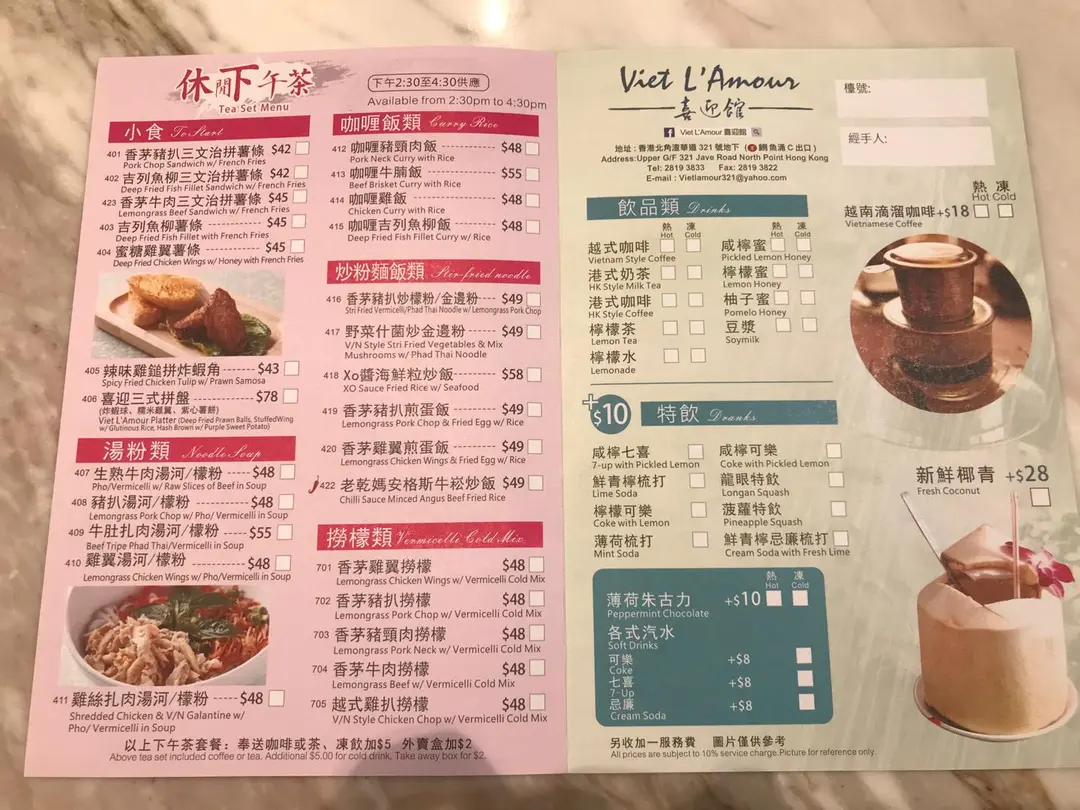 休閒下午茶
Tea Set Menu
下午2:30至4:30供應
Available from 2:30pm to 4:30pm
小食 To Start
401 香茅豬扒三文治拼薯條 $42
Pork Chop Sandwich w/ French Fries
402 吉列魚柳三文治拼薯條 $42
Deep Fried Fish Fillet Sandwich w/ French Fries
423 香茅牛肉三文治拼薯條 $45
Lemongrass Beef Sandwich w/ French Fries
403 吉列魚柳薯條 $45
Deep Fried Fish Fillet with French Fries
404 蜜糖雞翼薯條 $45
Deep Fried Chicken Wings w/ Honey with French Fries
405 辣味雞鎚拼炸蝦角 $43
Spicy Fried Chicken Tulip w/ Prawn Samosa
406 喜迎三式拼盤 $78
(炸蝦球、糯米雞翼、紫心薯餅)
Viet L'Amour Platter (Deep Fried Prawn Balls, StuffedWing
w/ Glutinous Rice, Hash Brown w/ Purple Sweet Potato)
湯粉類 Noodle Soup
407 生熟牛肉湯河/檬粉 $48
Pho/Vermicelli w/ Raw Slices of Beef in Soup
408 豬扒湯河/檬粉 $48
Lemongrass Pork Chop w/ Pho/ Vermicelli in Soup
409 牛肚扎肉湯河/檬粉 $55
Beef Tripe Phad Thai/Vermicelli in Soup
410 雞翼湯河/檬粉 $48
Lemongrass Chicken Wings w/ Pho/Vermicelli in Soup
411 雞絲扎肉湯河/檬粉 $48
Shredded Chicken & V/N Galantine w/
Pho/ Vermicelli in Soup
咖喱飯類 Curry Rice
412 咖喱豬頸肉飯 $48
Pork Neck Curry with Rice
413 咖喱牛腩飯 $55
Beef Brisket Curry with Rice
414 咖喱雞飯 $48
Chicken Curry with Rice
415 咖喱吉列魚柳飯 $48
Deep Fried Fish Fillet Curry w/ Rice
炒粉麵飯類 Stir-fried noodle
416 香茅豬扒炒檬粉/金邊粉 $49
Stri Fried Vermicelli/Phad Thai Noodle w/ Lemongrass Pork Chop
417 野菜什菌炒金邊粉 $49
V/N Style Stri Fried Vegetables & Mix
Mushrooms w/ Phad Thai Noodle
418 Xo醬海鮮粒炒飯 $58
XO Sauce Fried Rice w/ Seafood
419 香茅豬扒煎蛋飯 $49
Lemongrass Pork Chop & Fried Egg w/ Rice
420 香茅雞翼煎蛋飯 $49
Lemongrass Chicken Wings & Fried Egg w/ Rice
422 老乾媽安格斯牛崧炒飯 $49
Chilli Sauce Minced Angus Beef Fried Rice
撈檬類 Vermicelli Cold Mix
701 香茅雞翼撈檬 $48
Lemongrass Chicken Wings w/ Vermicelli Cold Mix
702 香茅豬扒撈檬 $48
Lemongrass Pork Chop w/ Vermicelli Cold Mix
703 香茅豬頸肉撈檬 $48
Lemongrass Pork Neck w/ Vermicelli Cold Mix
704 香茅牛肉撈檬 $48
Lemongrass Beef w/ Vermicelli Cold Mix
705 越式雞扒撈檬 $48
V/N Style Chicken Chop w/ Vermicelli Cold Mix
以上下午茶套餐：奉送咖啡或茶、凍飲加$5 外賣盒加$2
Above tea set included coffee or tea. Additional $5.00 for cold drink. Take away box for $2.
Viet L'Amour
喜迎館
Viet L'Amour 喜迎館
地址：香港北角渣華道 321 號地下（鰂魚涌 C 出口）
Address:Upper G/F 321 Jave Road North Point Hong Kong
Tel: 2819 3833 Fax: 2819 3822
E-mail : Vietlamour321@yahoo.com
檯號:
經手人:
飲品類 Drinks
熱 凍 熱 凍
Hot Cold Hot Cold
越式咖啡
Vietnam Style Coffee
港式奶茶
HK Style Milk Tea
港式咖啡
HK Style Coffee
檸檬茶
Lemon Tea
檸檬水
Lemonade
咸檸蜜
Pickled Lemon Honey
檸檬蜜
Lemon Honey
柚子蜜
Pomelo Honey
豆漿
Soymilk
熱 凍
Hot Cold
越南滴溜咖啡+$18
Vietnamese Coffee
+$10 特飲 Dranks
咸檸七喜
7-up with Pickled Lemon
鮮青檸梳打
Lime Soda
檸檬可樂
Coke with Lemon
薄荷梳打
Mint Soda
咸檸可樂
Coke with Pickled Lemon
龍眼特飲
Longan Squash
菠蘿特飲
Pineapple Squash
鮮青檸忌廉梳打
Cream Soda with Fresh Lime
新鮮椰青 +$28
Fresh Coconut
熱 凍
Hot Cold
薄荷朱古力 +$10
Peppermint Chocolate
各式汽水
Soft Drinks
可樂 +$8
Coke
七喜 +$8
7-Up
忌廉 +$8
Cream Soda
另收加一服務費 圖片僅供參考
All prices are subject to 10% service charge.Picture for reference only.